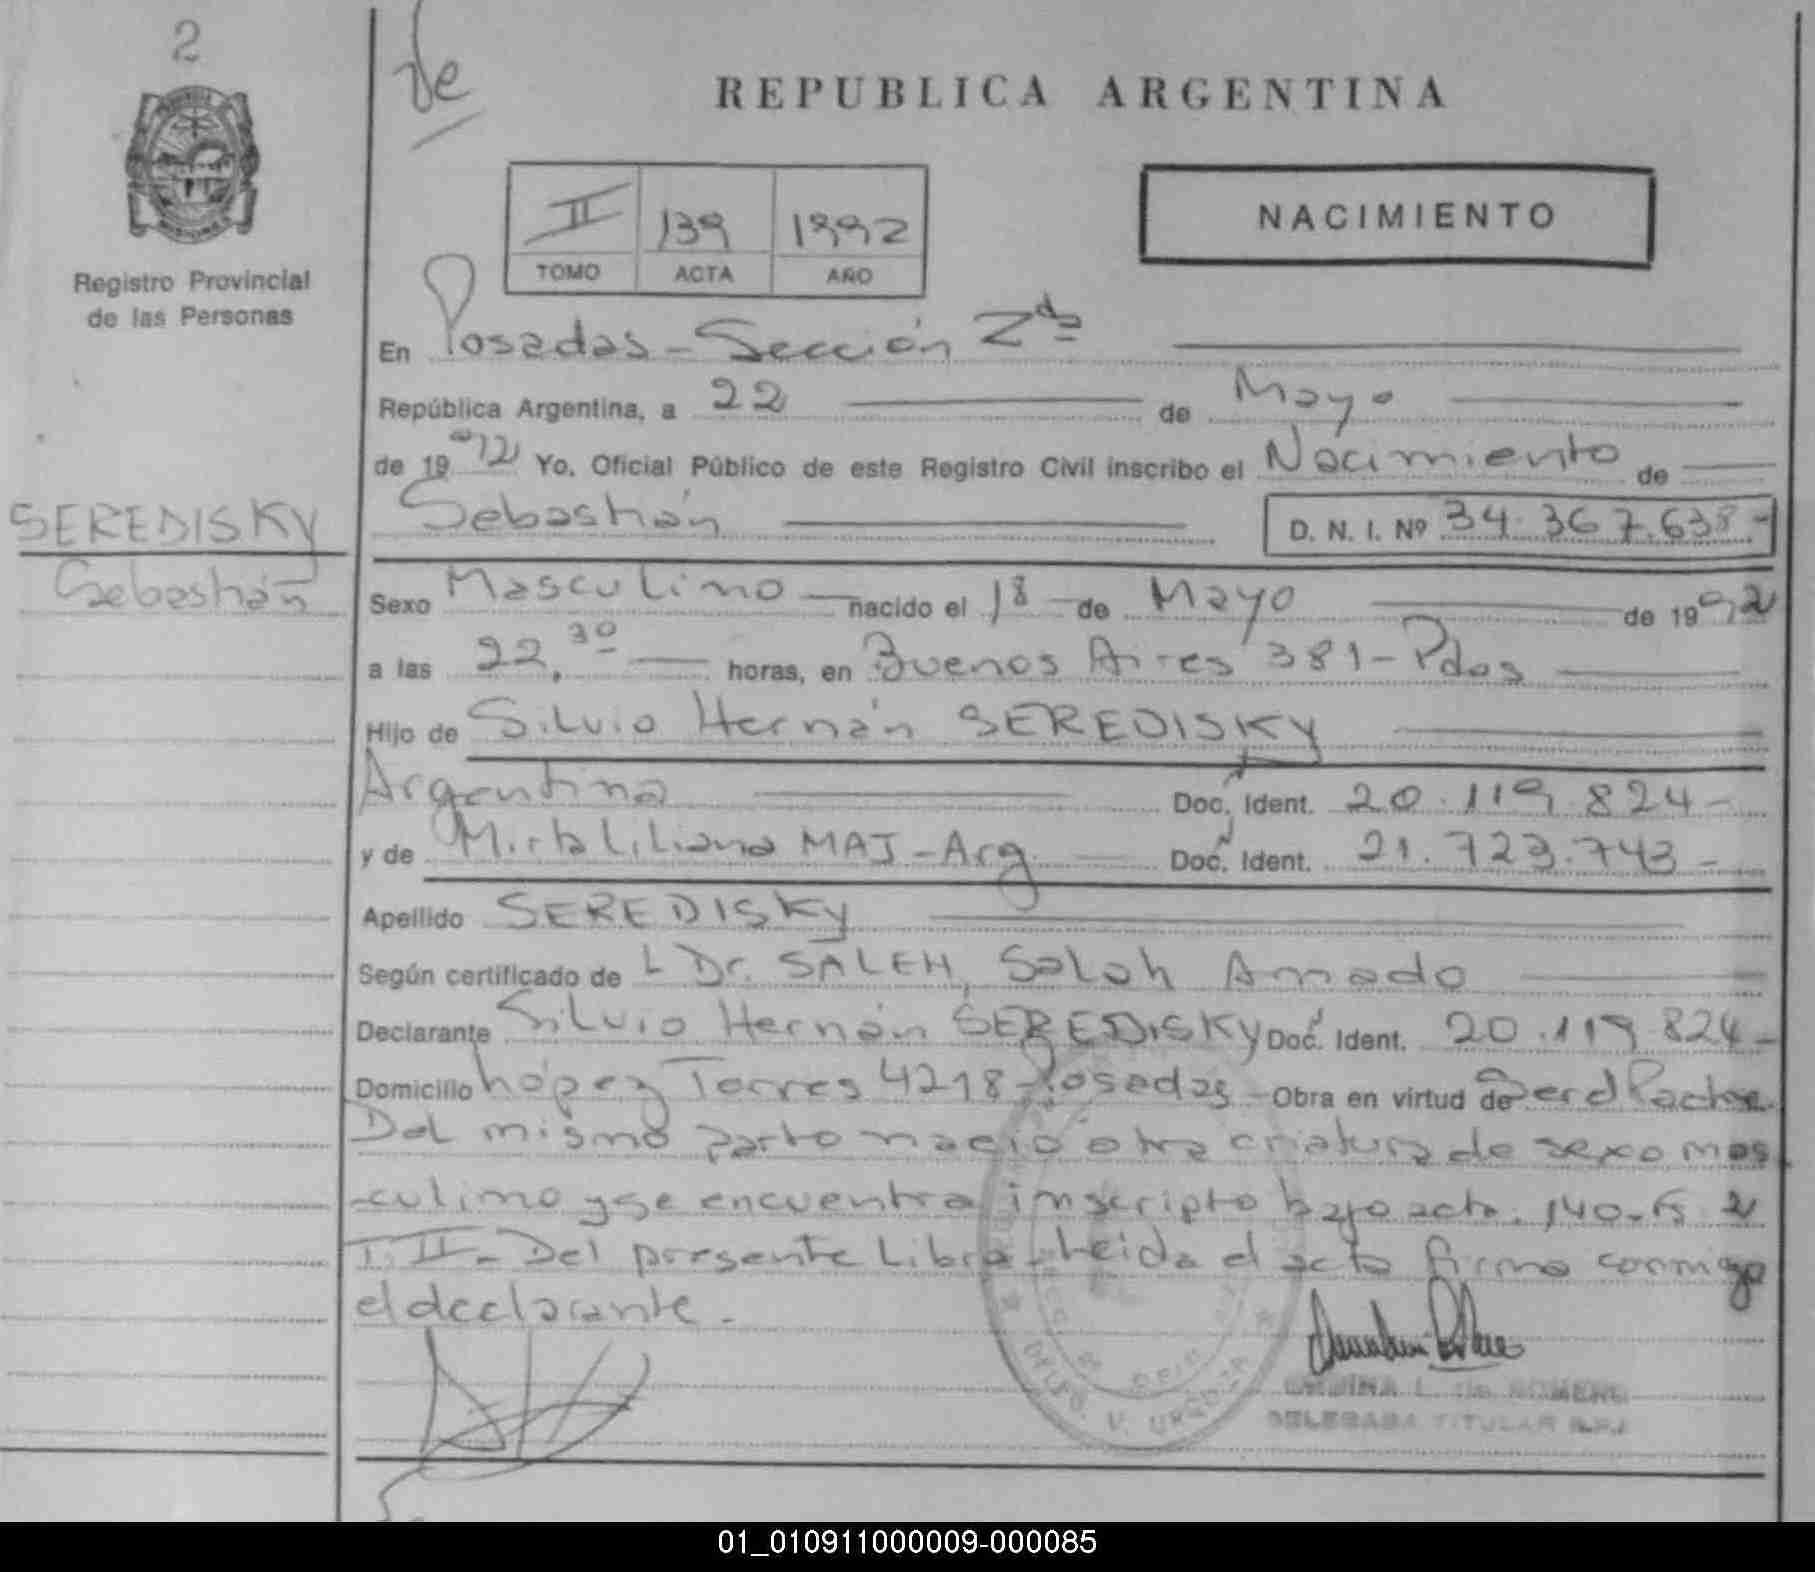 2
de
REPUBLICA ARGENTINA
II 139 1992
TOMO ACTA AÑO
NACIMIENTO
Registro Provincial
de las Personas
En Posadas - Sección 2da
República Argentina, a 22 de Mayo
de 1992 Yo, Oficial Público de este Registro Civil inscribo el Nacimiento de
Sebastián D. N. I. Nº 34.367.638-
SEREDISKY
Sebastián
Sexo Masculino nacido el 18 de Mayo de 1992
a las 22,30 horas, en Buenos Aires 381 - Pdas
Hijo de Silvio Hernán SEREDISKY
Argentina Doc. Ident. 20.119.824-
y de Mirta Liliana MAJ - Arg. Doc. Ident. 21.723.743-
Apellido SEREDISKY
Según certificado de L Dr. SALEH, Saleh Amado
Declarante Silvio Hernán SEREDISKY Doc. Ident. 20.119.824-
Domicilio López Torres 4218 - Posadas - Obra en virtud de Ser el Padre.
Del mismo parto nació otra criatura de sexo mas
-culino y se encuentra inscripto bajo acta. 140-Fs 2
T. II - Del presente Libro - Leida el acta firma conmigo
el declarante.
DELEGADA TITULAR
01_010911000009-000085